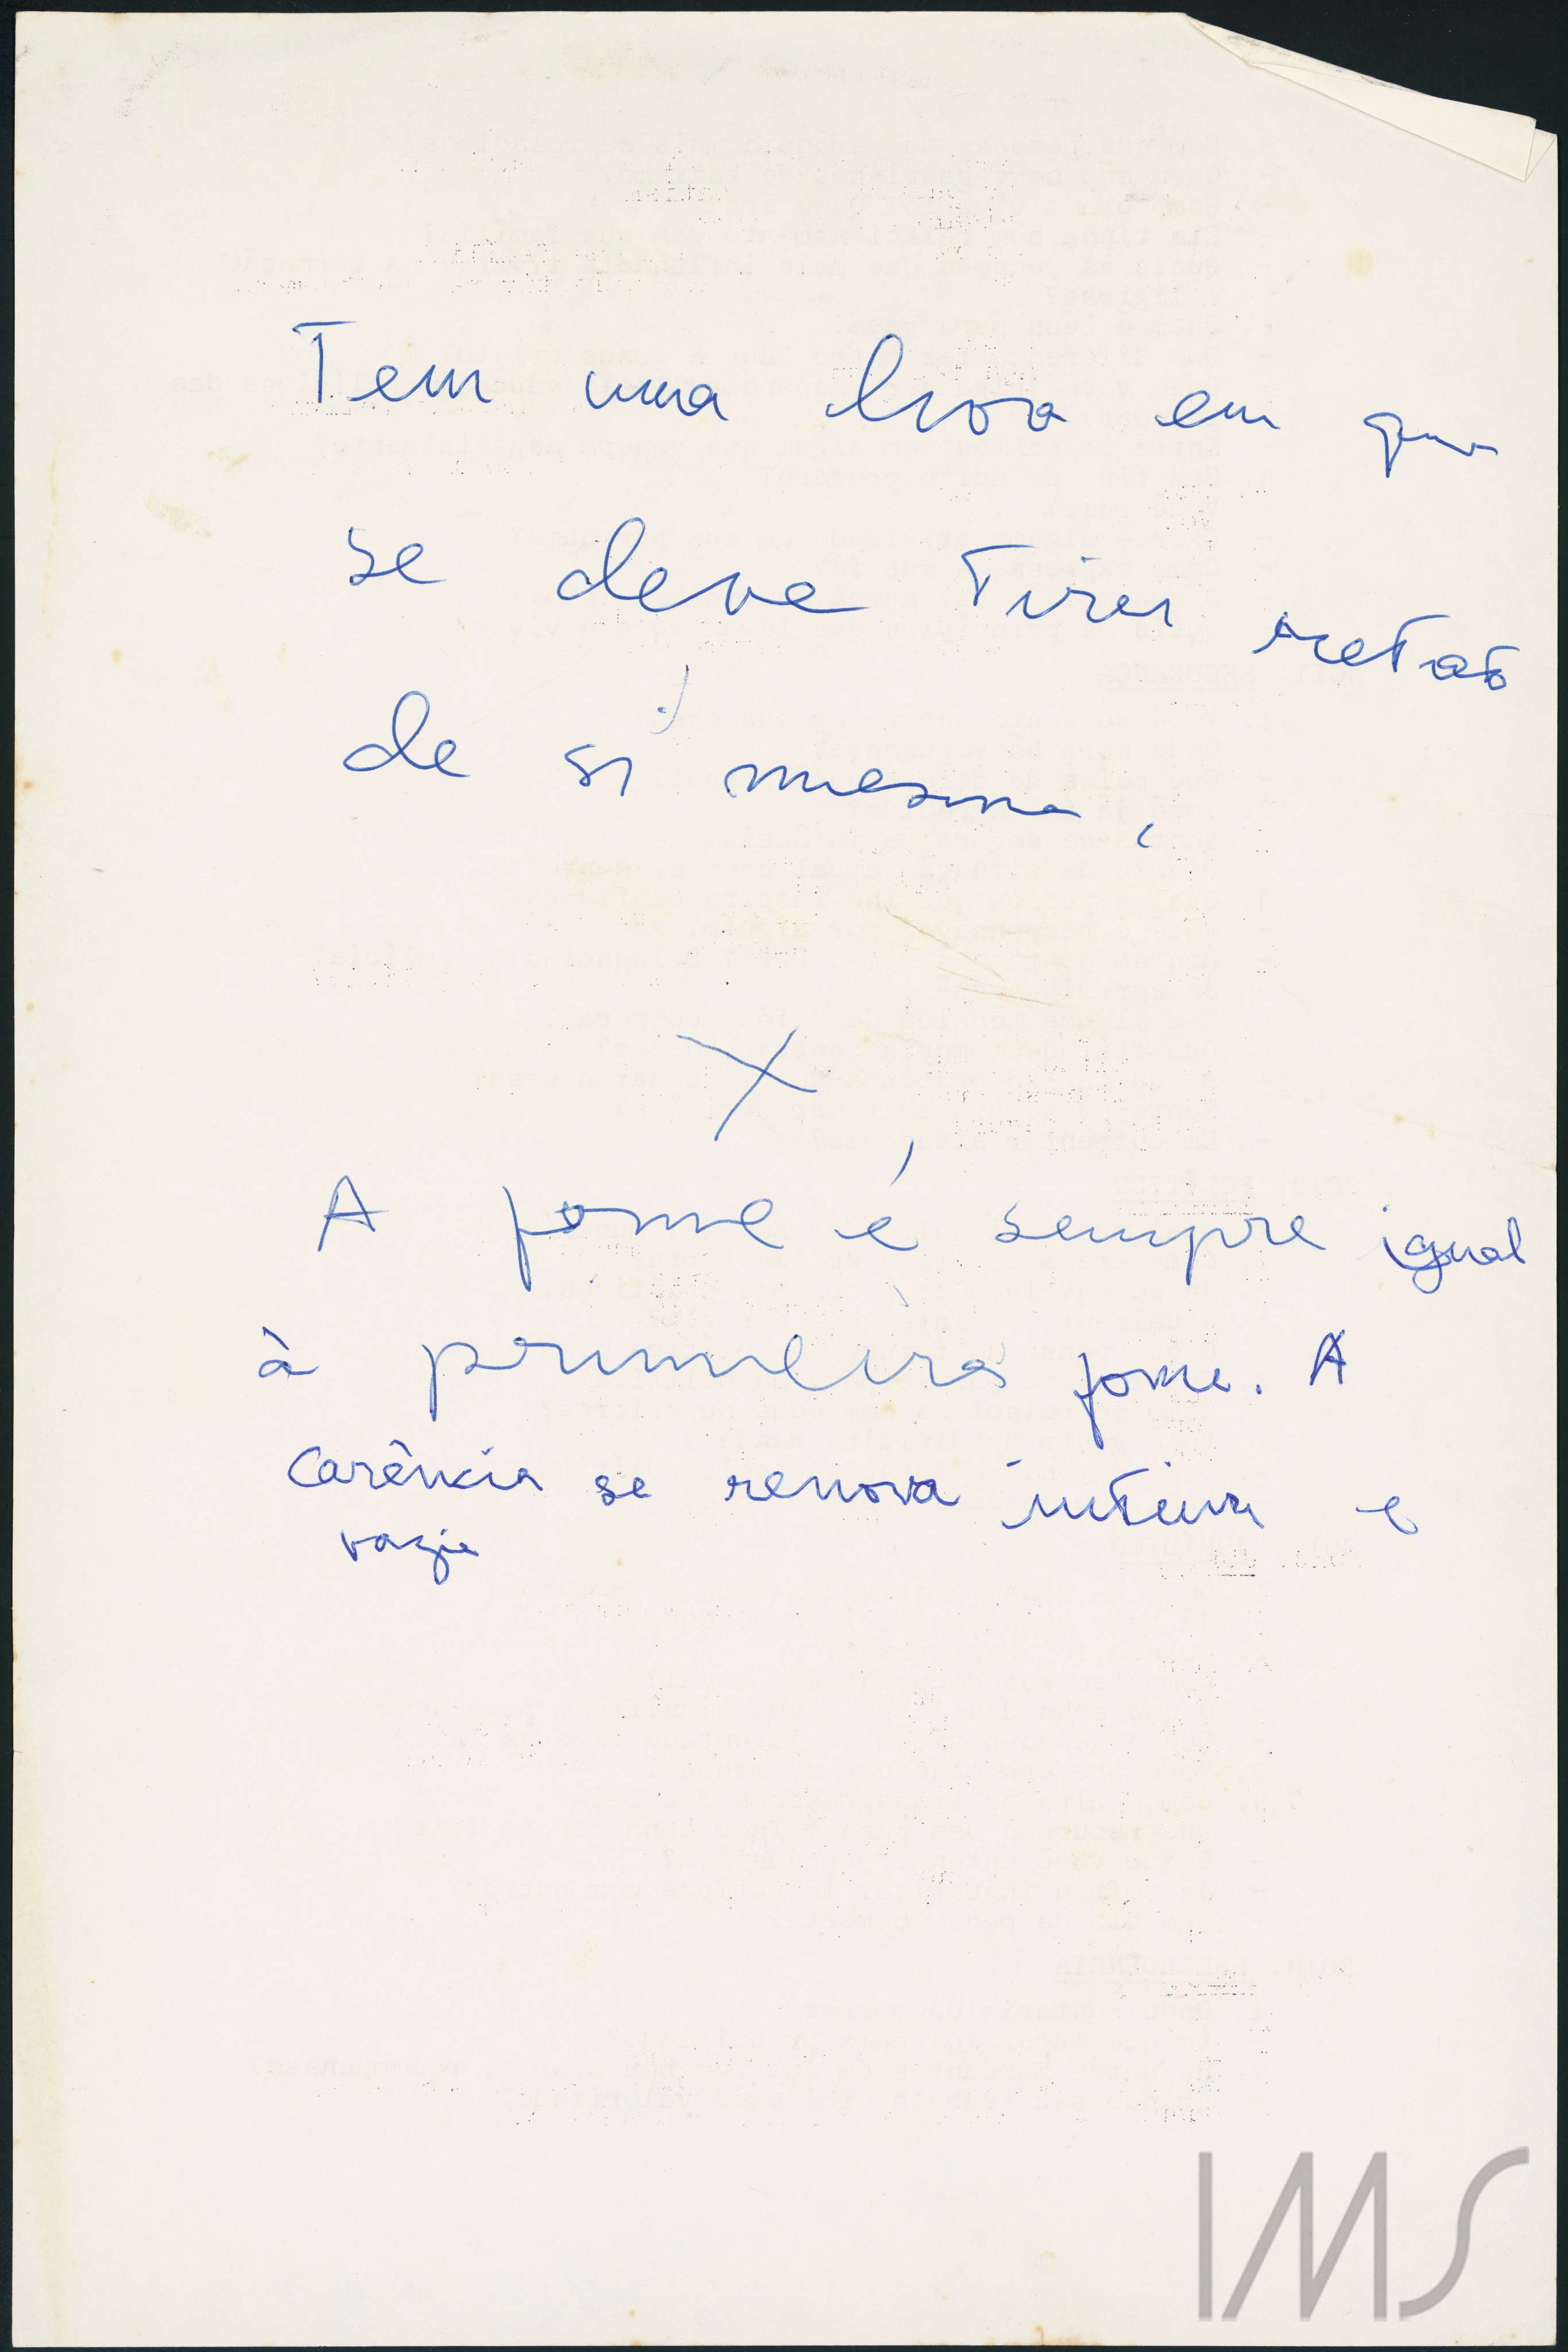 Tem uma hora em que
se deve tirar retrato
de si mesma,
X
A fome é sempre igual
à primeira fome. A
carência se renova inteira e
vazia
IMS